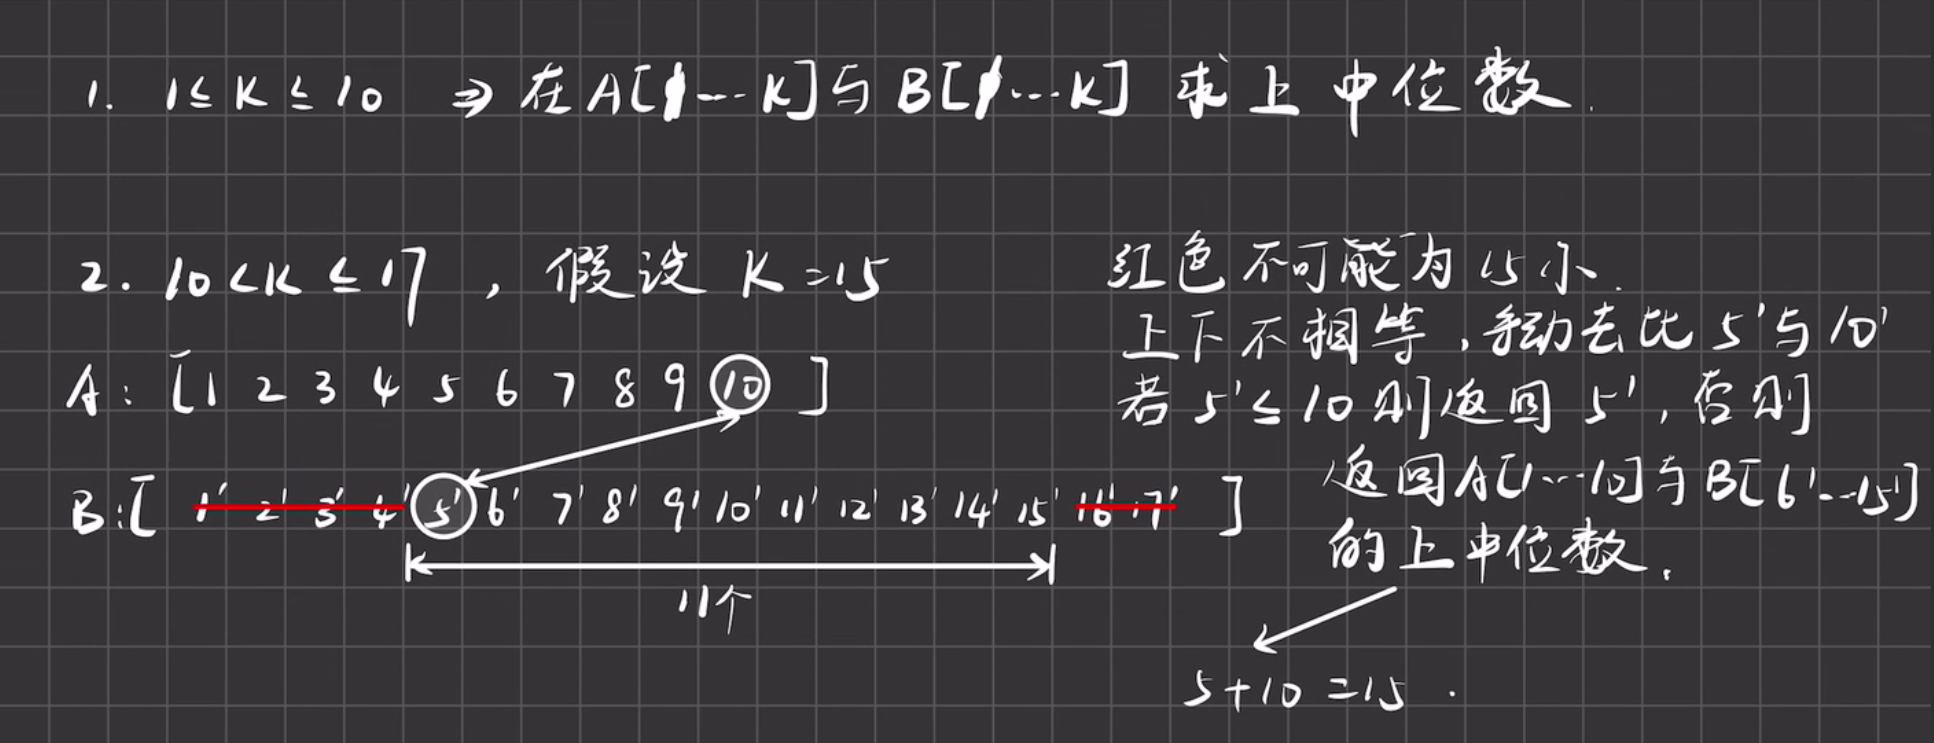 1. 1≤K≤10 ⇒ 在A[1...K]与B[1...K] 求上中位数.
2. 10<K≤17, 假设 K=15
A: [1 2 3 4 5 6 7 8 9 10 ]
B:[ 1' 2' 3' 4' 5' 6' 7' 8' 9' 10' 11' 12' 13' 14' 15' 16' 17' ]
11个
红色不可能为15小.
上下不相等,手动去比5'与10'
若5'≤10则返回5',否则
返回A[1...10]与B[6'...15']
的上中位数.
5+10=15.